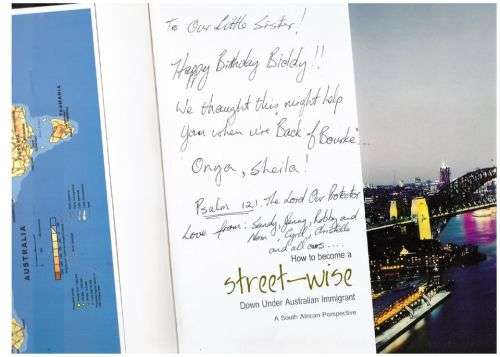 To Our Little Sister!
Happy Birthday Biddy!!
We thought this might help
when "Back of Bourke"...
Onya, Sheila!
Psalm 121. The Lord Our Protector
Love from: Sandy, Robby and
and all ours....
How to become a
street-wise
Down Under Australian Immigrant
A South African Perspective
AUSTRALIA
TASMANIA